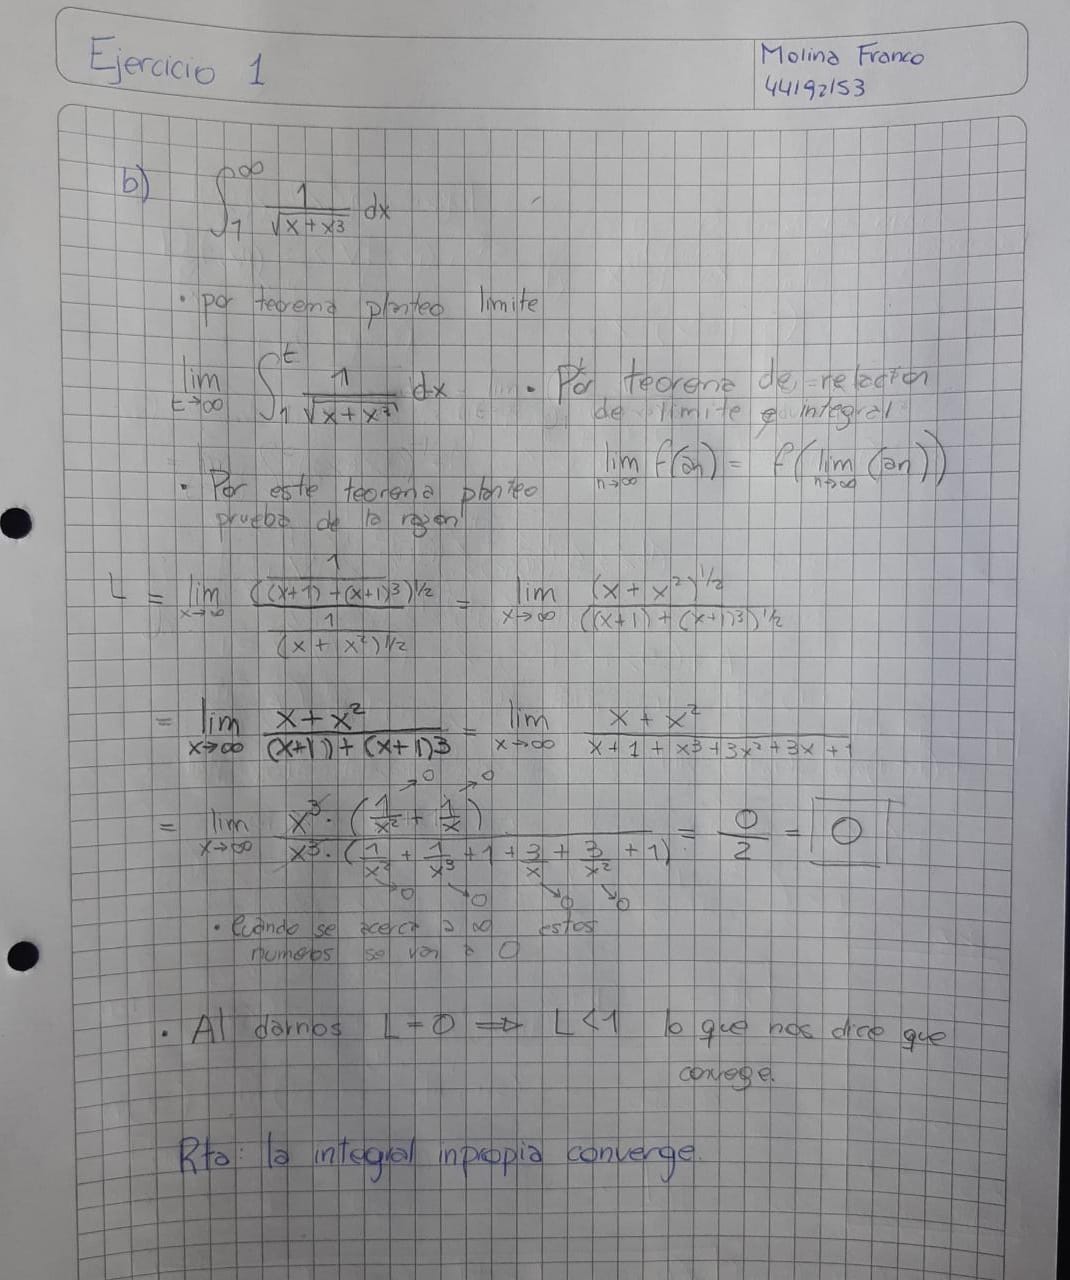 Ejercicio 1
Molina Franco
44192153
b) ∫₁^∞ 1/√(x+x³) dx
· por teorema planteo limite
lim t→∞ ∫₁^t 1/√(x+x³) dx
· Por teorema de relacion
de limite e integral
lim n→∞ f(an) = f(lim n→∞ (an))
· Por este teorema planteo
prueba de la razon
L = lim x→∞ (1/((x+1)+(x+1)3)^1/2)/(1/(x+x²)^1/2) = lim x→∞ (x+x²)^1/2/((x+1)+(x+1)3)^1/2
= lim x→∞ (x+x²)/((x+1)+(x+1)3) = lim x→∞ (x+x²)/(x+1+x3+3x²+3x+1)
= lim x→∞ x³·(1/x² →0 + 1/x →0)/x³·(1/x² →0 + 1/x³ →0 + 1 + 3/x →0 + 3/x² →0 + 1) = 0/2 = 0
· Cuando se acerca a ∞ estos
numeros se van a 0
· Al darnos L=0 ⇒ L<1 lo que nos dice que
convege.
Rta: la integral inpropia converge.